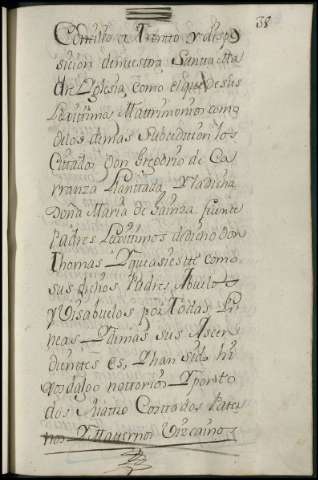 38
Concilio de Trento y dispo
sizion de nuestra Santa Ma
dre Yglesia como el que de sus
Lexitimos Matrimonios como
de los demas Subcedieron los
Citados Don Gregorio de Ca
rranza Llantada, Y la dicha
Doña Maria de fuente
Padres Lexitimos de dicho Don
Thomas Y que asi este como
sus dichos Padres, Abuelos
Y Visabuelos por Todas Li
neas, Y demas sus Ascen
dientes es, Y han sido hi
xosdalgo nottorios Y por to
dos quatro Costados Pater
nos Y Maternos Vizcainos